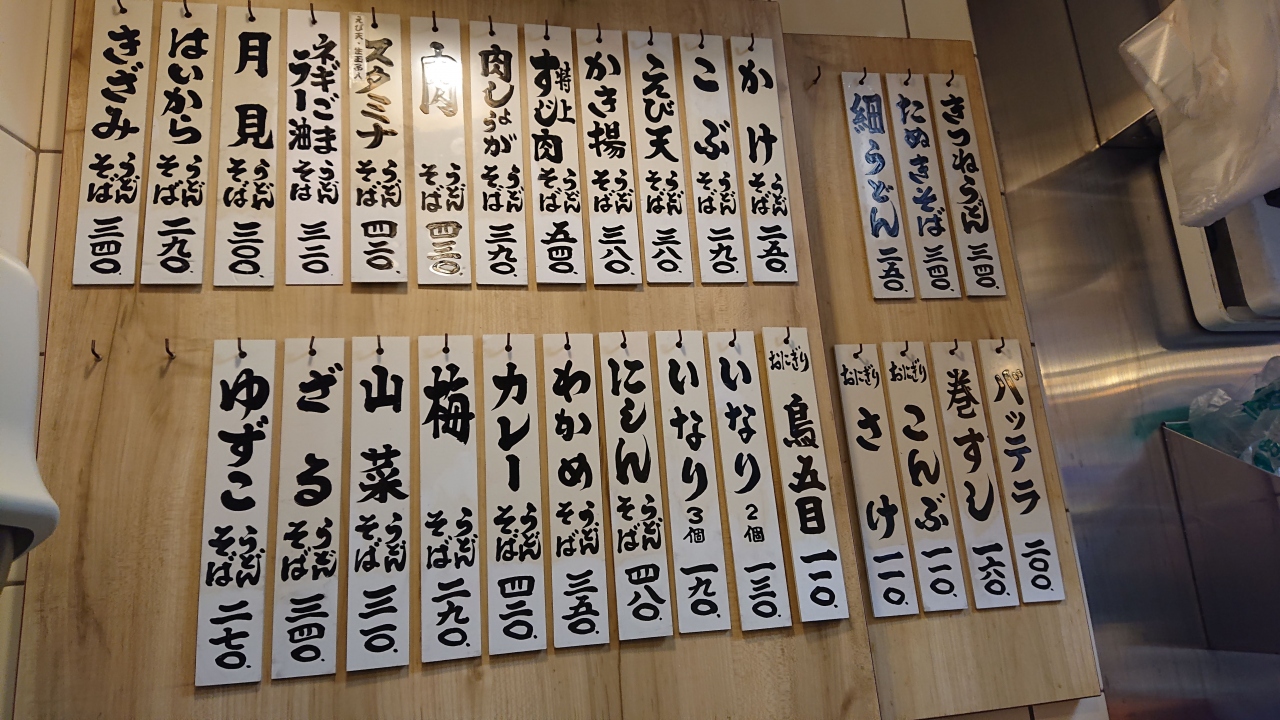 きつねうどん 三四〇
たぬきそば 三四〇
細うどん 二五〇
かけ うどん そば 二五〇
こぶ うどん そば 二九〇
えび天 うどん そば 三八〇
かき揚 うどん そば 三八〇
特上 すじ肉 うどん そば 五四〇
肉しょうが うどん そば 三九〇
肉 うどん そば 四三〇
えび天・生玉子入 スタミナ うどん そば 四二〇
ネギごまラー油 うどん そば
月見 うどん そば 三〇〇
はいから うどん そば 二九〇
きざみ うどん そば 三四〇
バッテラ 二〇〇
巻すし 一六〇
おにぎり こんぶ 一一〇
おにぎり さけ 一一〇
おにぎり 鳥五目 一一〇
いなり 2個 一三〇
いなり 3個 一九〇
にしん うどん そば 四八〇
わかめ うどん そば 三五〇
カレー うどん そば 四二〇
梅 うどん そば 二九〇
山菜 うどん そば 三一〇
ざる うどん そば 三四〇
ゆずこ うどん そば 二七〇